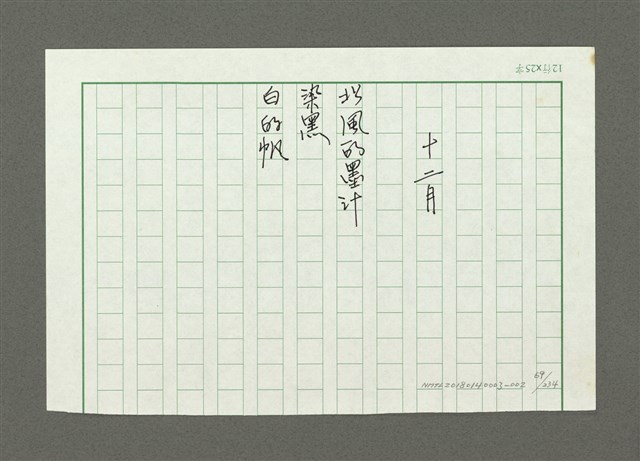 12行×25字
十二月
北風的墨汁
染黑
白的帆
NMTL20180140003-002
69/234